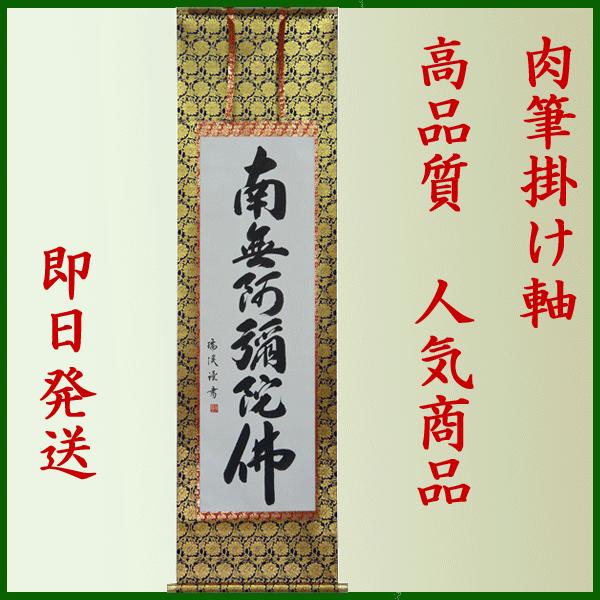 肉筆掛け軸
高品質 人気商品
南無阿彌陀佛
謹書
即日発送